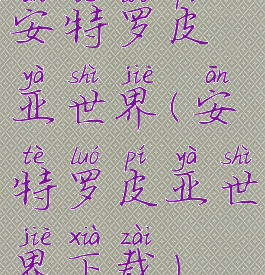 安特罗皮
yà shì jiē ān
亚世界(安
tè luó pí yà shì
特罗皮亚世
jiē xià zài
界下载)